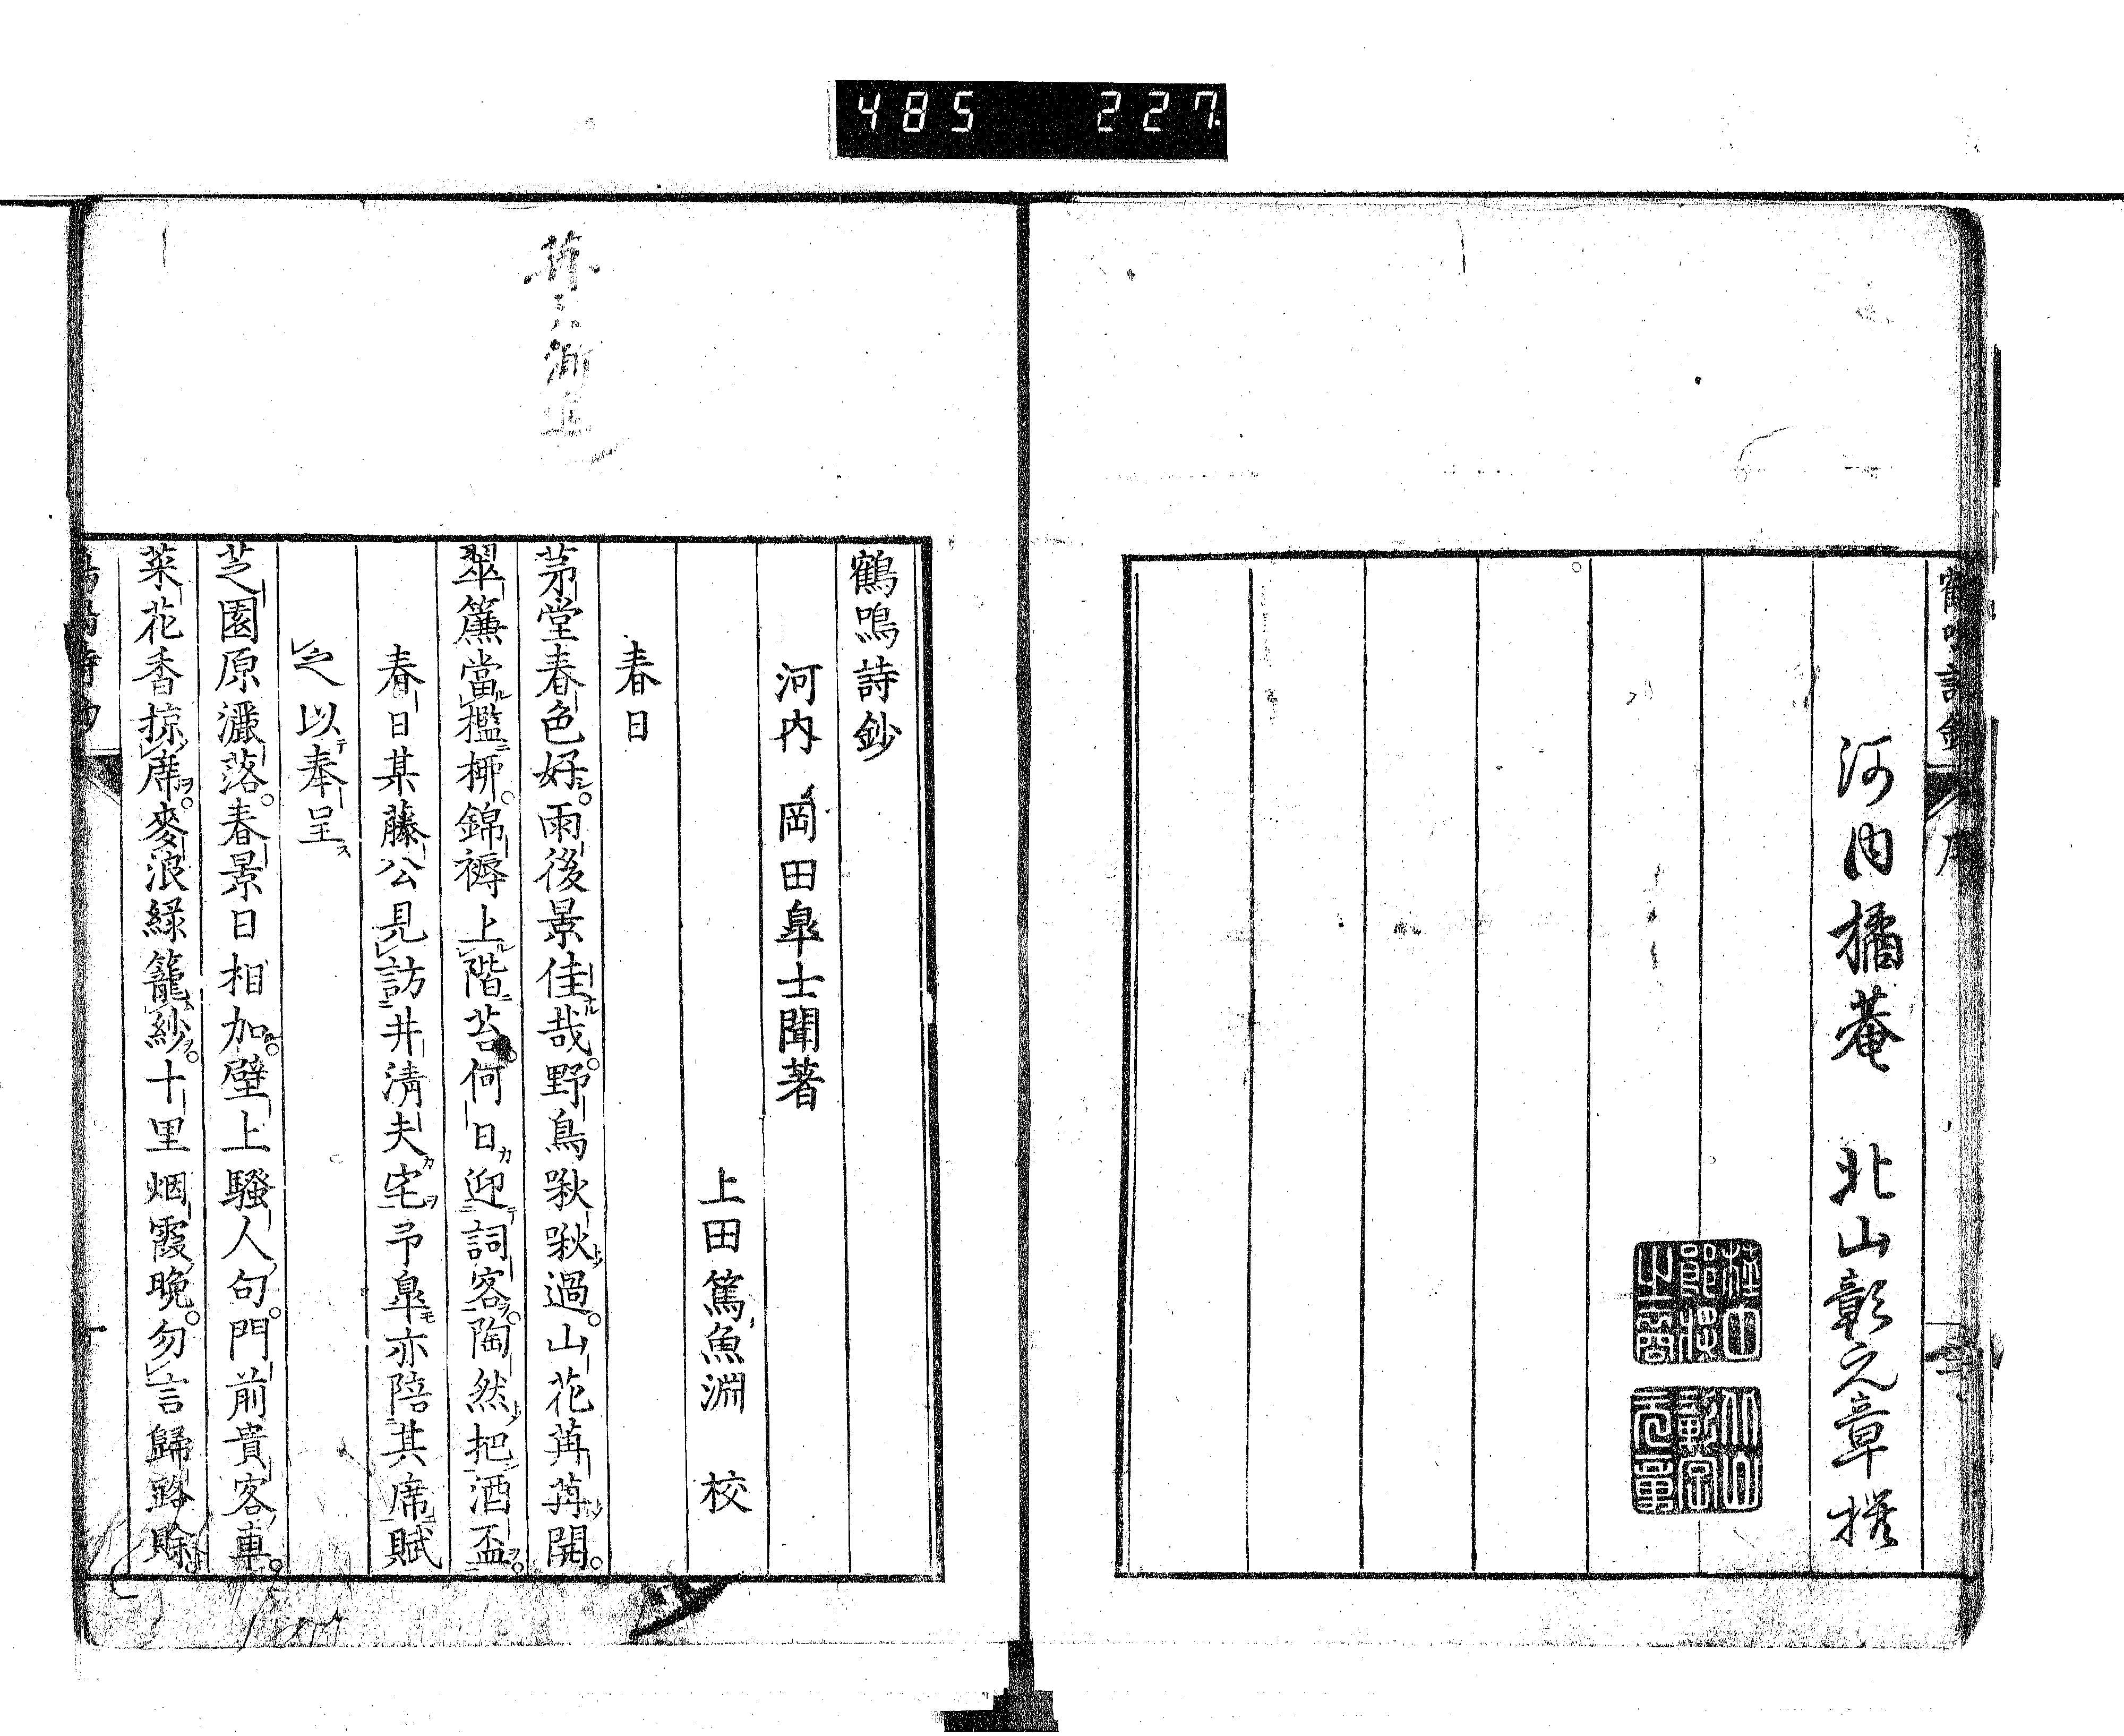 485 227
鶴鳴詩鈔 序
河内橘菴 北山彰元章撰
鶴鳴詩鈔
河内 岡田皐士聞著
上田篤魚淵 校
春日
茅堂春色好雨後景佳哉。野鳥啾啾過。山花苒苒開。
翠簾當檻柳。錦褥上階苔。何日迎詞客陶然把酒盃。
春日某藤公見訪井清夫宅予皐亦陪其席賦
之以奉呈
芝園原灑落。春景日相加。壁上騷人句。門前貴客車。
菜花香掠席。麥浪緑籠紗。十里烟霞晩。勿言歸路賖。